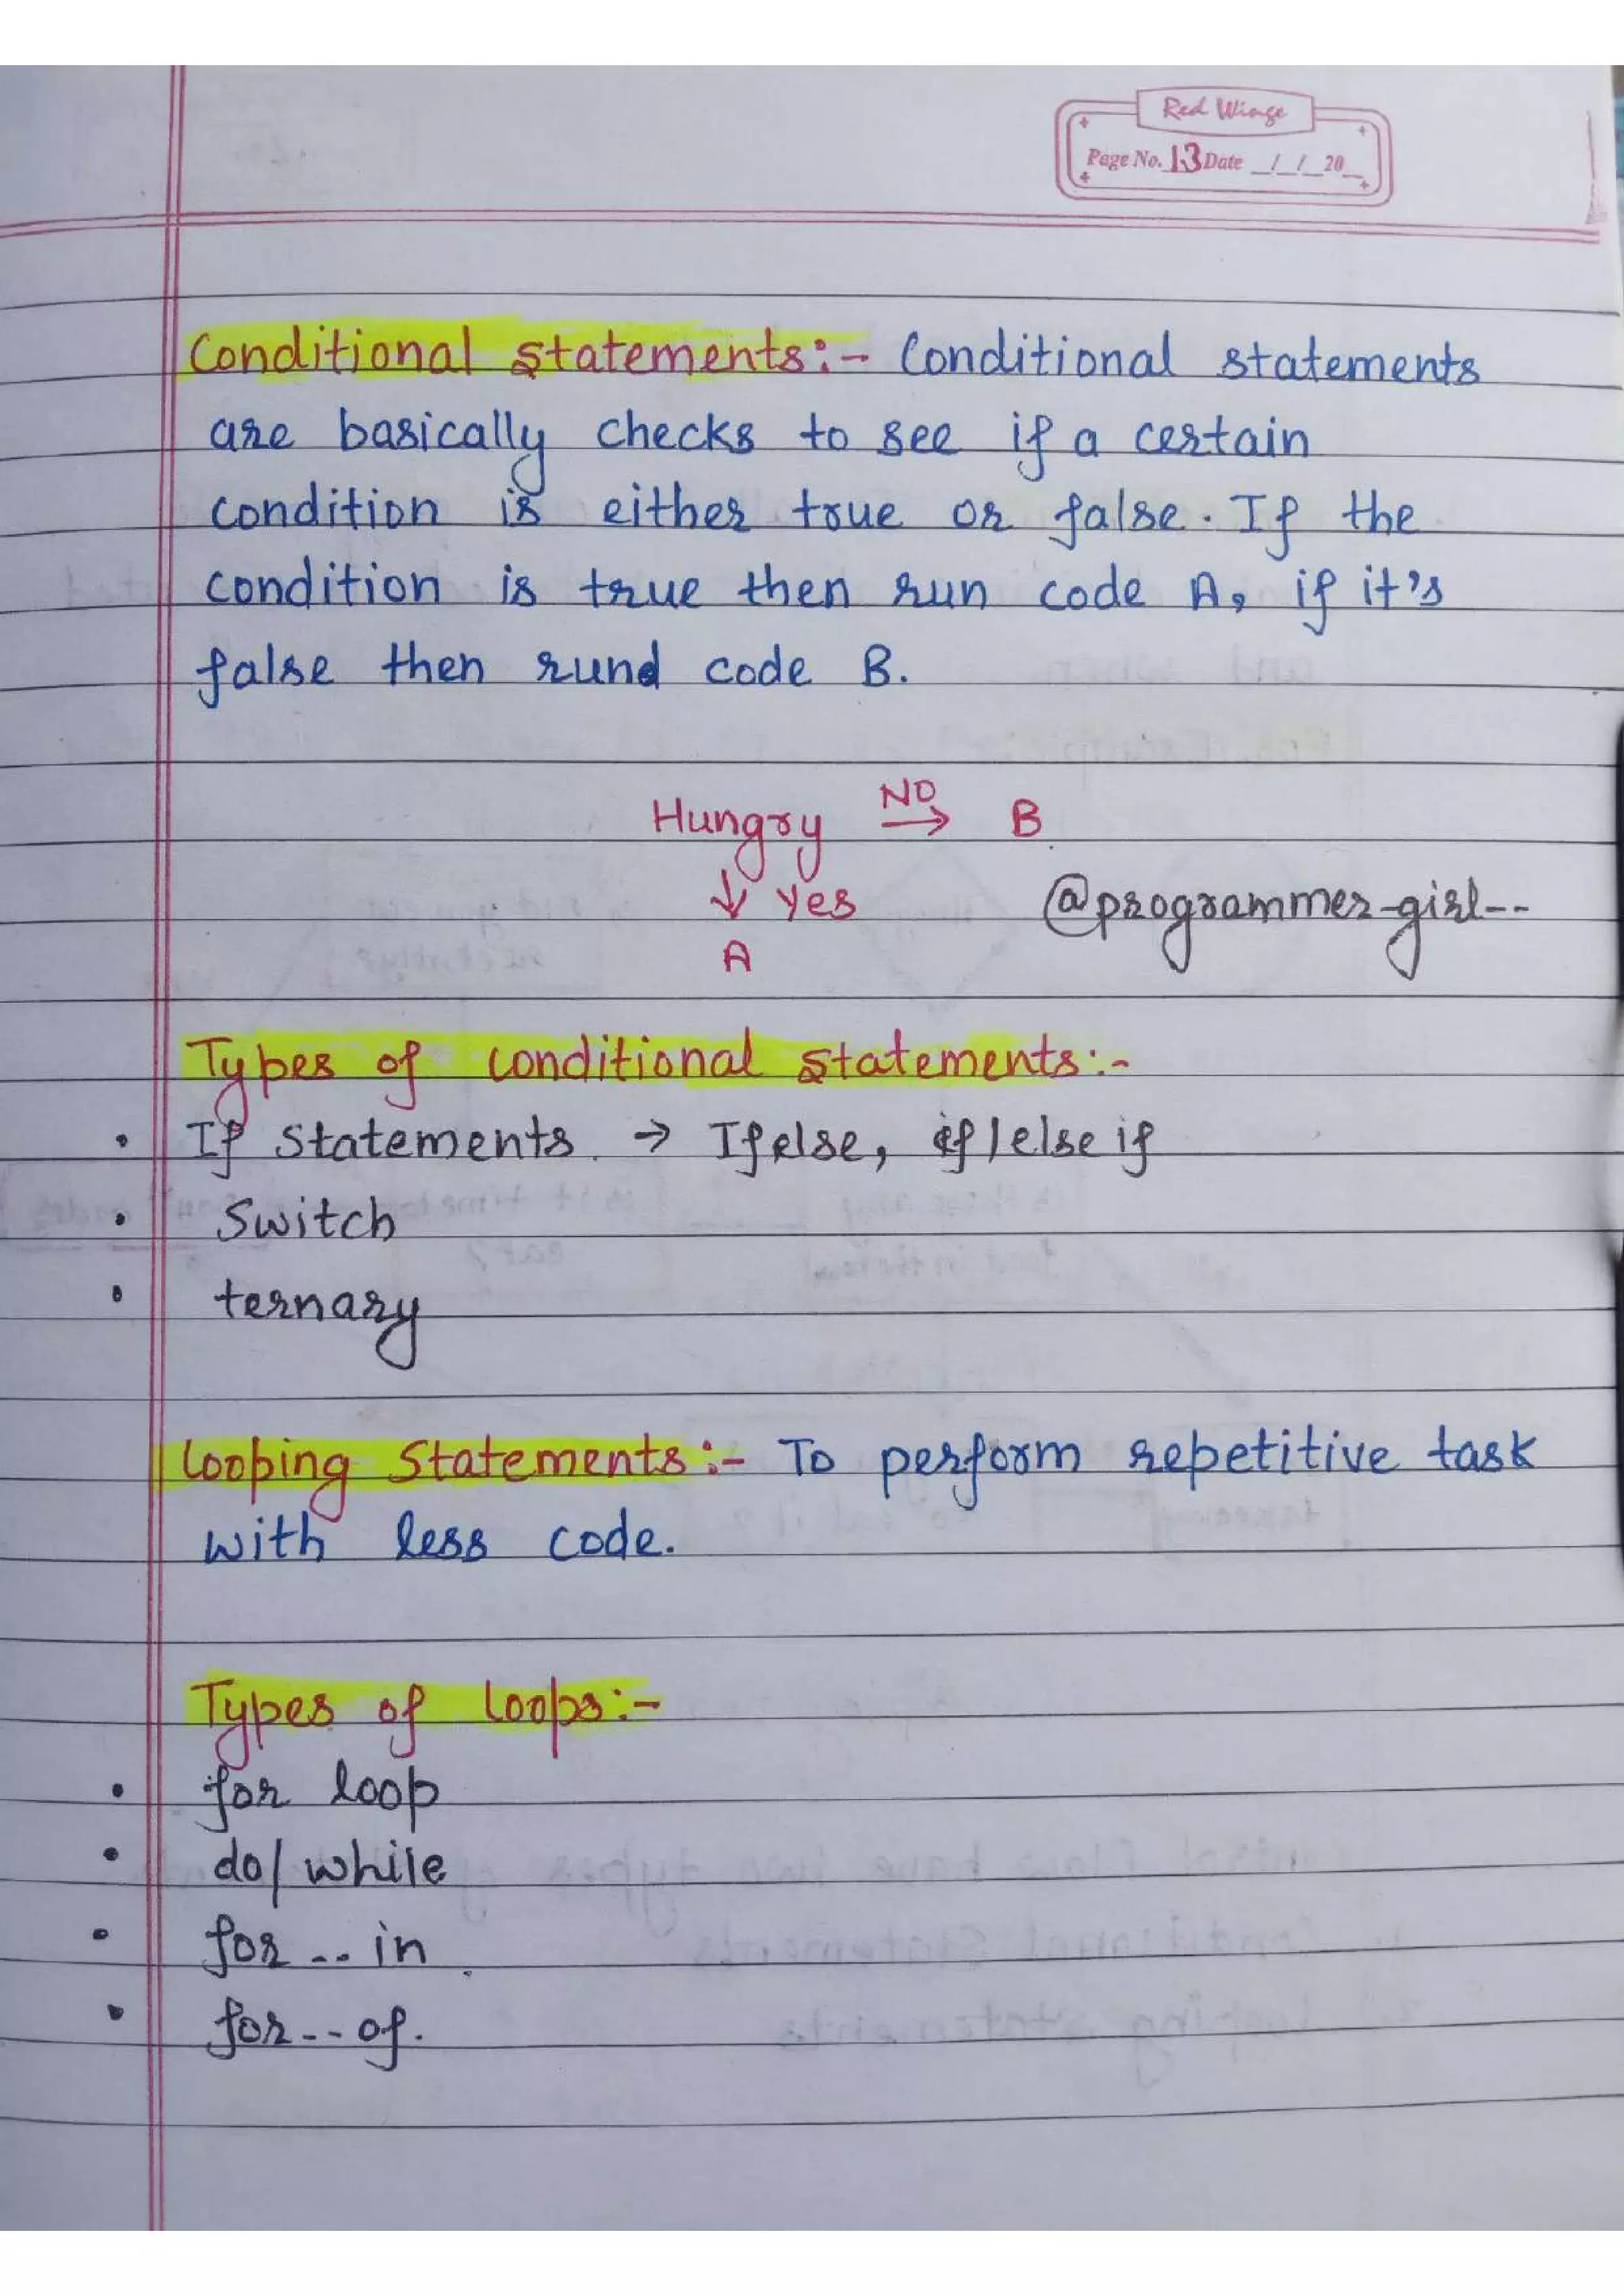 Red Winge
Page No. 13 Date _/_/_20_
Conditional Statements:- Conditional statements
are basically checks to see if a certain
condition is either true or false. If the
condition is true then run code A, if it's
false then rund code B.
Hungry NO → B
↓ Yes
@programmer-girl--
A
Types of conditional statements:-
• If statements. → If else, if/else if
• Switch
• ternary
Looping Statements:- To perform repetitive task
with less code.
Types of Loops:-
• for loop
• do/while
• for -- in
• for -- of.